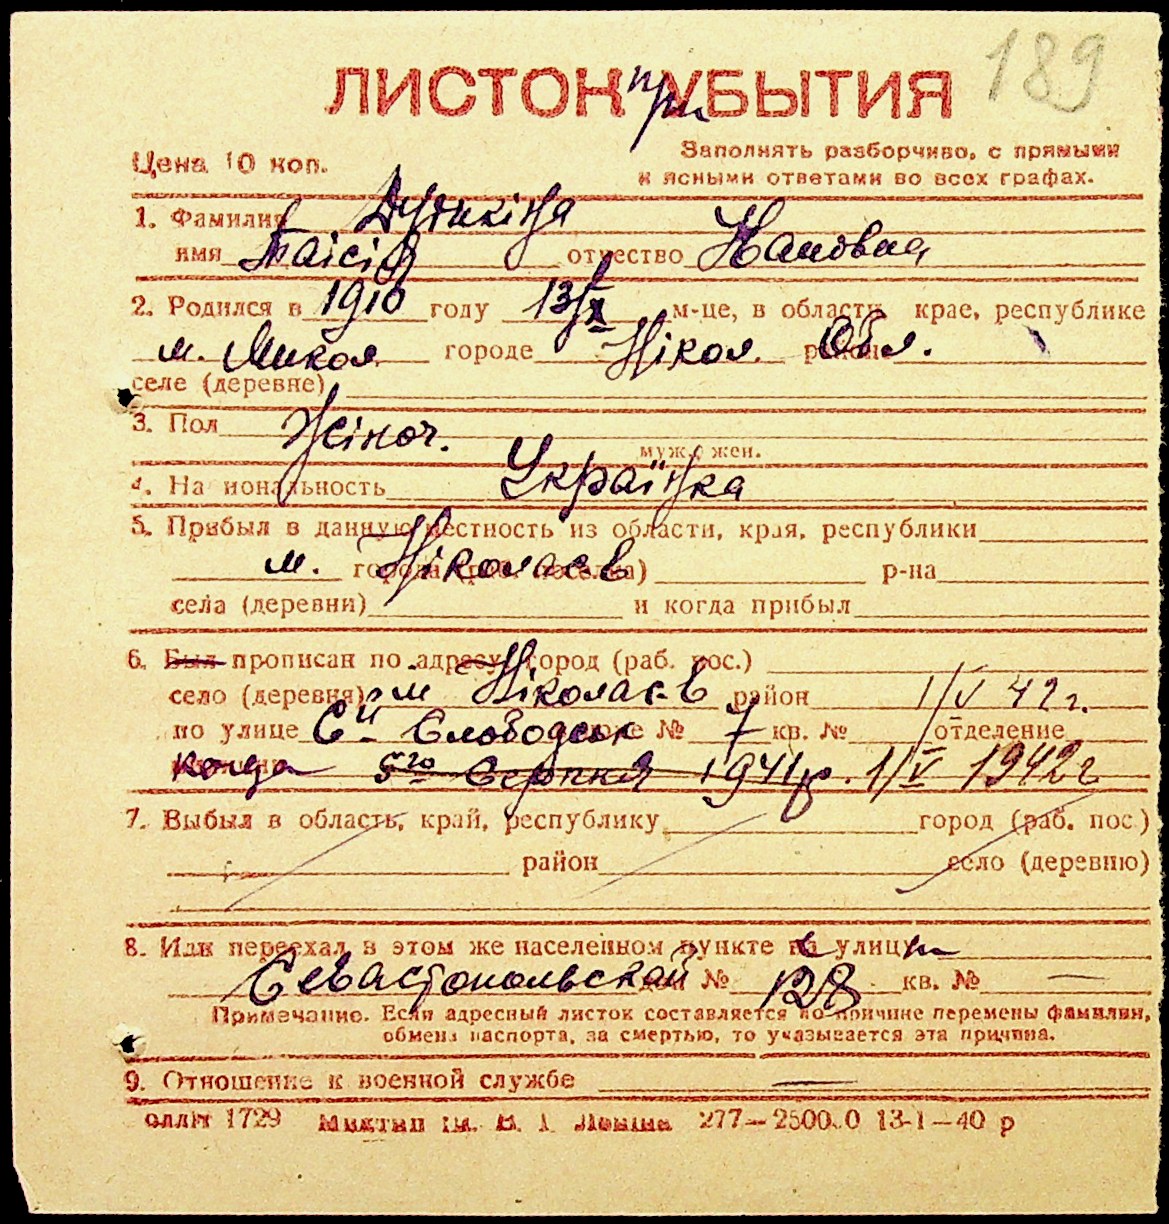 189
ЛИСТОК при УБЫТИЯ
Цена 10 коп.
Заполнять разборчиво, с прямыми
и ясными ответами во всех графах.
1. Фамилия
имя Таісія отчество
2. Родился в 1910 году 13/X м-це, в области, крае, республике
м. Микол. городе Нікол. районе Обл.
селе (деревне)
3. Пол Жіноч.
муж. жен.
4. Национальность Українка
5. Прибыл в данную местность из области, края, республики
м. Ніколаєв города (раб. поселка) р-на
села (деревни) и когда прибыл
6. Был прописан по адресу: город (раб. пос.)
село (деревня) м Ніколаєв район 1/V 42 г.
по улице 6й Слободск доме № 7 кв. № отделение
милиции когда 5го Серпня 1941р. 1/V 1942 г
7. Выбыл в область, край, республику город (раб. пос.)
район село (деревню)
8. Или переехал в этом же населенном пункте на улицу
Севастопольской дом № 128 кв. № —
Примечание. Если адресный листок составляется по причине перемены фамилии,
обмена паспорта, за смертью, то указывается эта причина.
9. Отношение к военной службе —
1729 277—25000 13-1—40 р